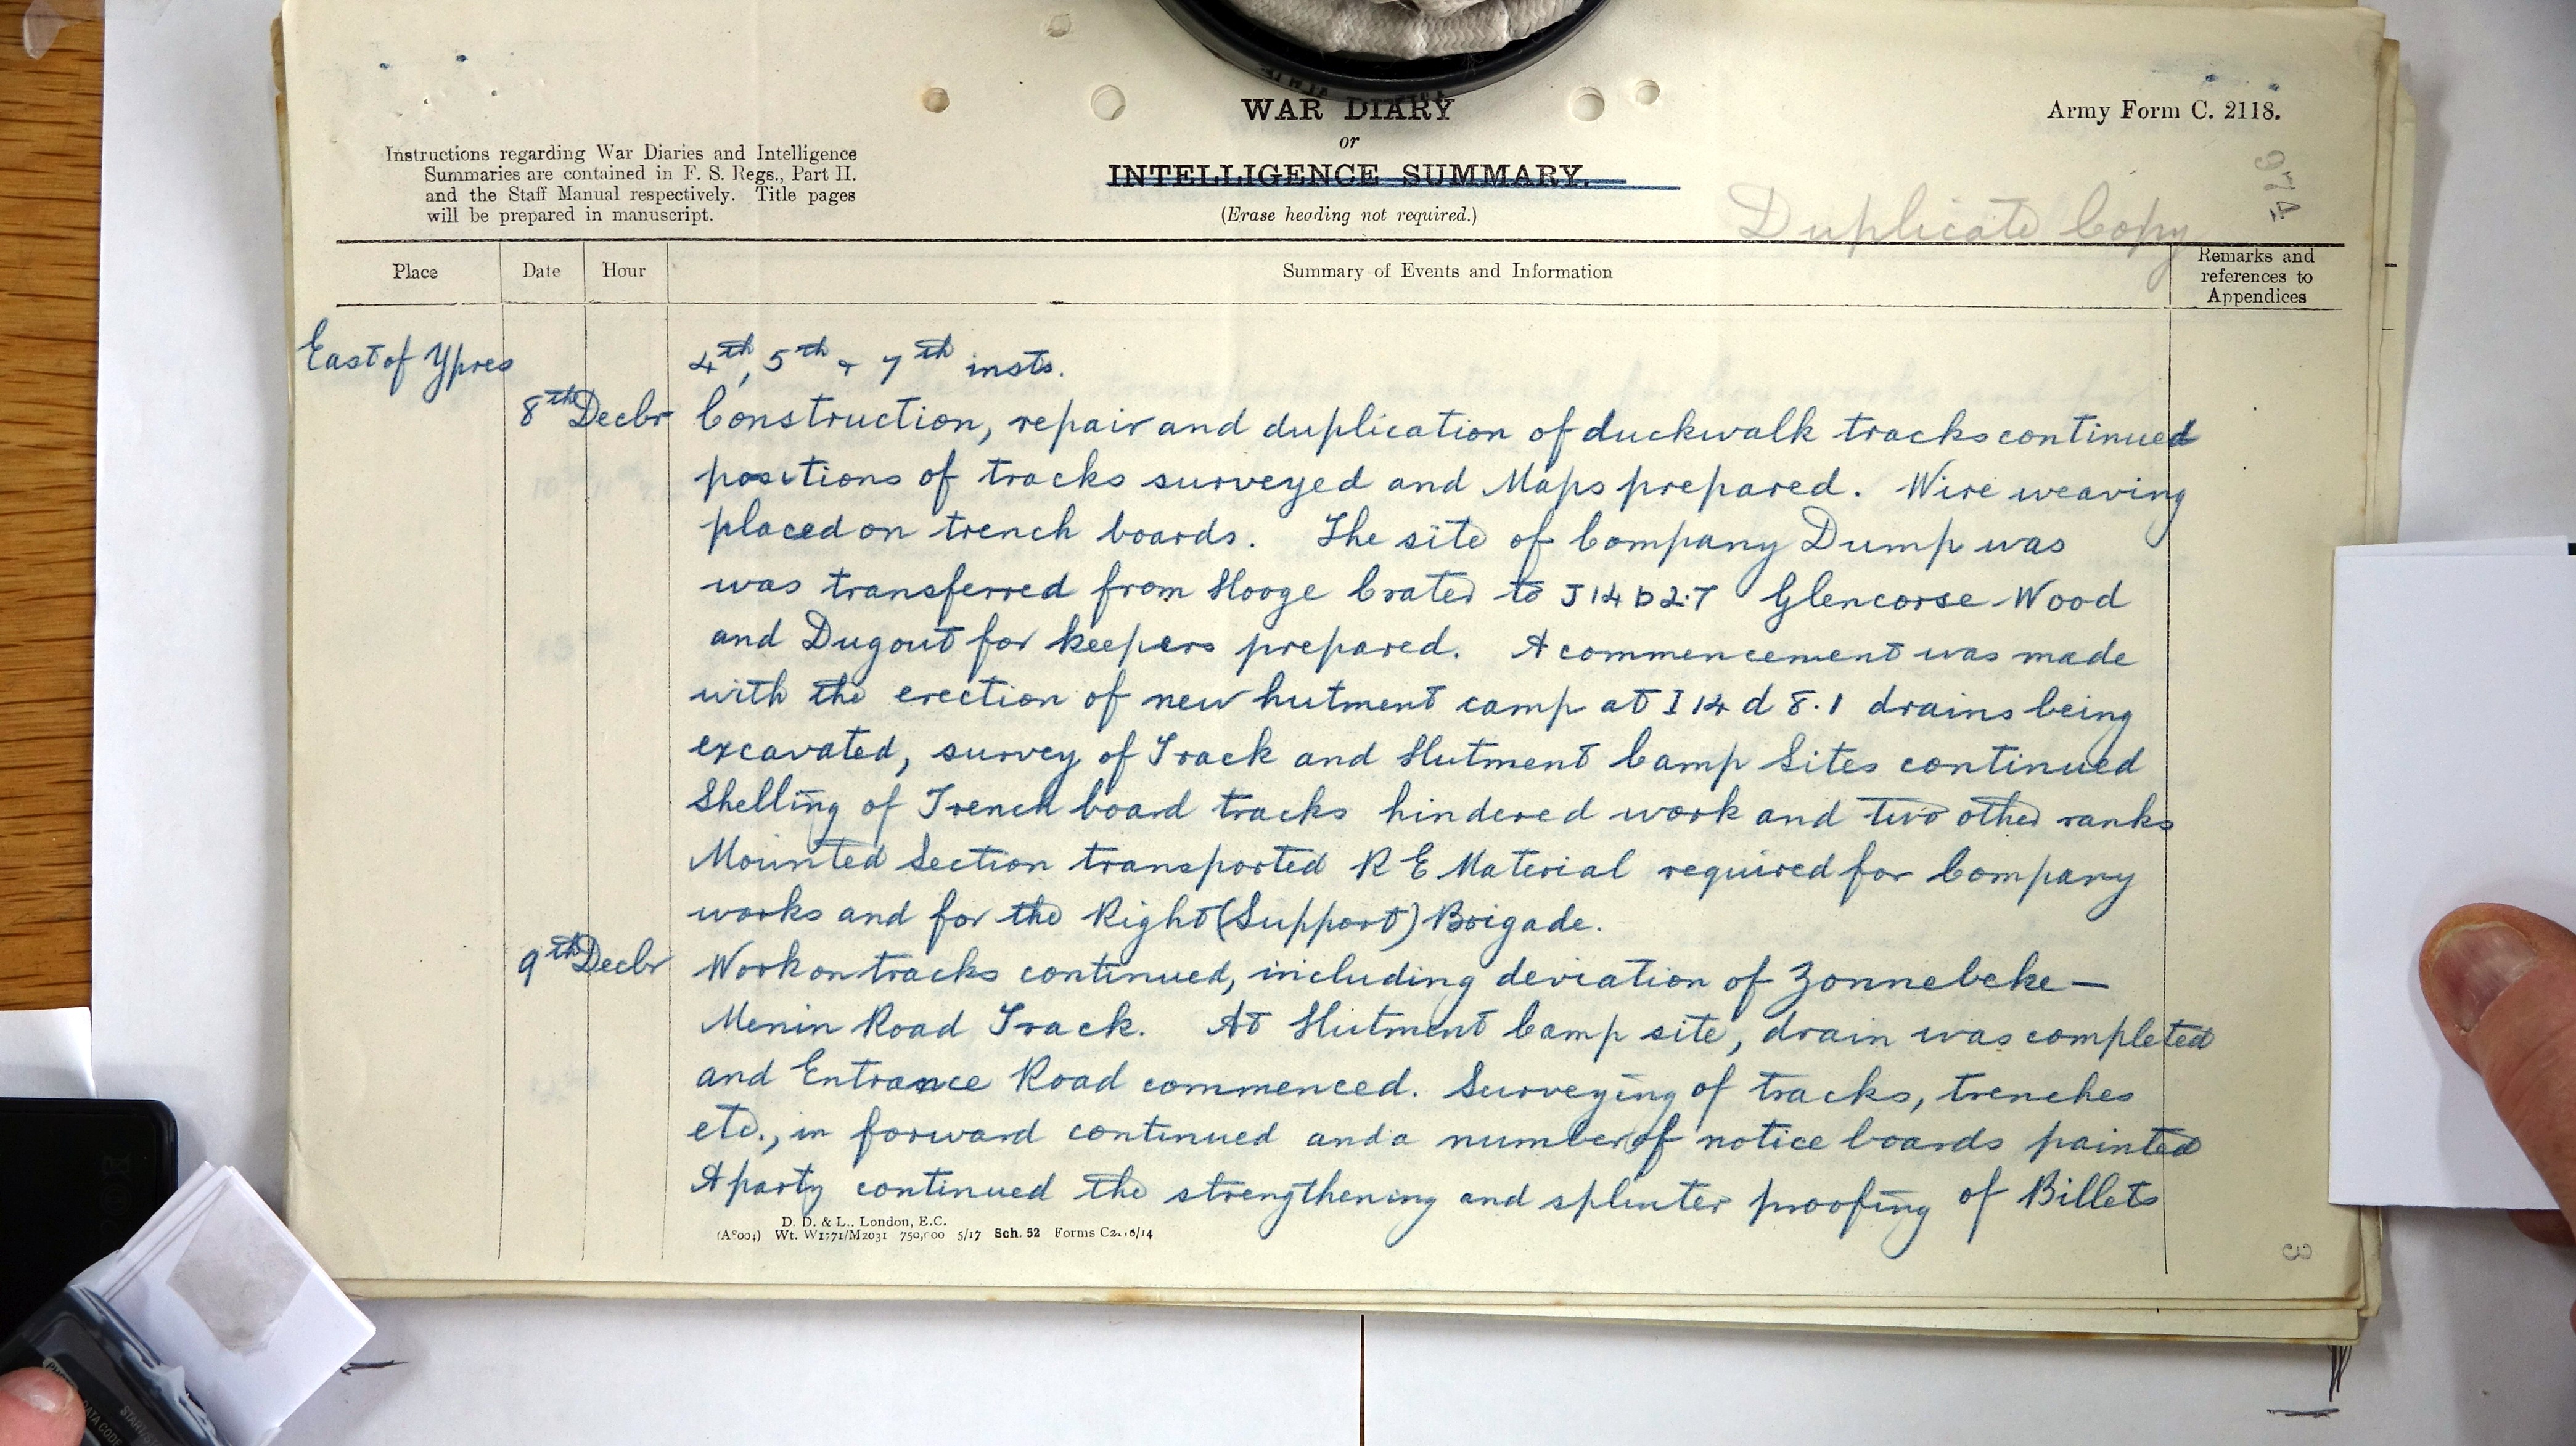 WAR DIARY
or
INTELLIGENCE SUMMARY.
(Erase heading not required.)
Army Form C. 2118.
Instructions regarding War Diaries and Intelligence
Summaries are contained in F. S. Regs., Part II.
and the Staff Manual respectively. Title pages
will be prepared in manuscript.
Duplicate Copy
974
Place Date Hour Summary of Events and Information Remarks and references to Appendices
East of Ypres 4th, 5th & 7th insts.
8th Decbr Construction, repair and duplication of duckwalk tracks continued
positions of tracks surveyed and Maps prepared. Wire weaving
placed on trench boards. The site of Company Dump was
was transferred from Hooge Crater to J 14 b 2.7 Glencorse Wood
and Dugout for keepers prepared. A commencement was made
with the erection of new hutment camp at I 14 d 8.1 drains being
excavated, survey of Track and Hutment Camp Sites continued
Shelling of Trench board tracks hindered work and two other ranks
Mounted Section transported R E Material required for Company
works and for the Right (Support) Brigade.
9th Decbr Work on tracks continued, including deviation of Zonnebeke —
Menin Road Track. At Hutment Camp site, drain was completed
and Entrance Road commenced. Surveying of tracks, trenches
etc., in forward continued and a number of notice boards painted
A party continued the strengthening and splinter proofing of Billets
D. D. & L., London, E.C.
Wt. W1771/M2031 750,000 5/17 Sch. 52 Forms
3